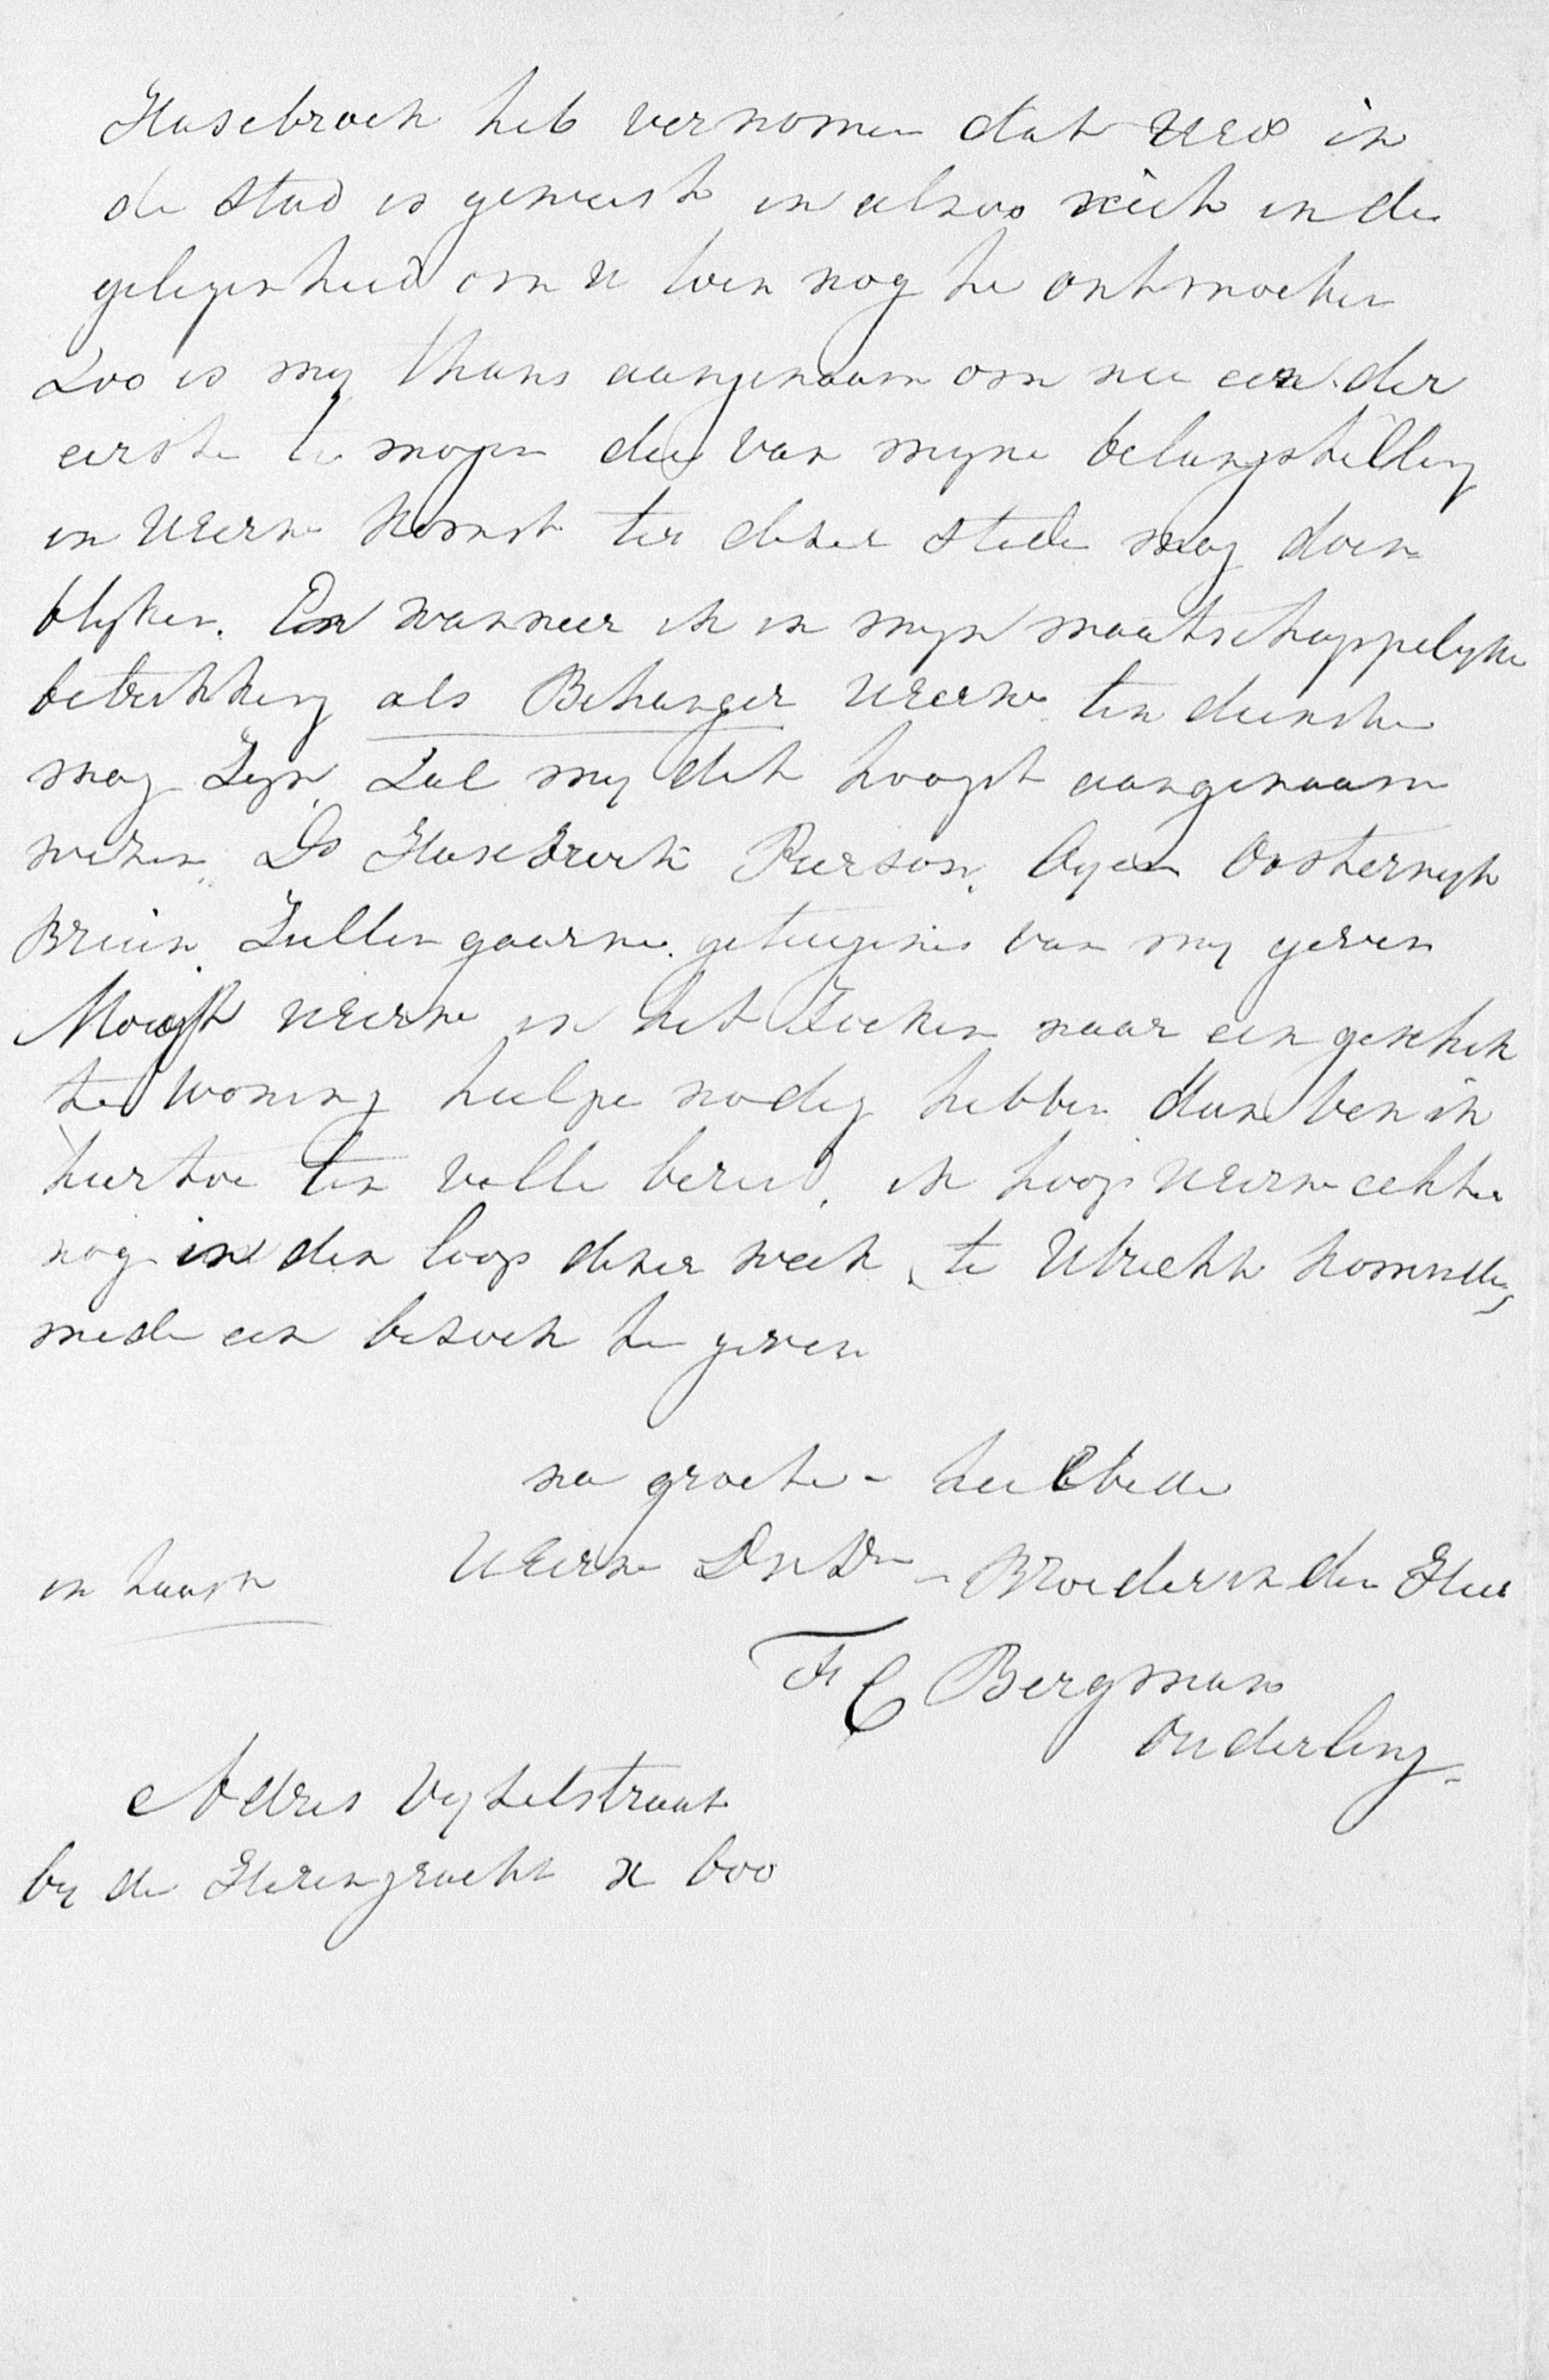 Hasebroek heb vernomen dat UEd in
de stad is geweest en alzoo niet in de
gelegenheid om u toen nog te ontmoeten
Zoo is my thans aangenaam om nu een der
eerste te mogen die van myne belangstelling
in UEerw komst ter dezer stede mag doen
blyken. En wanneer ik in myn maatschappelyke
betrekking als Behanger UEerw ten dienste
mag zyn, zal my dit hoogst aangenaam
wezen. Ds Hasebroek Pierson, Oyen Oosterwyk
Bruin. Zullen gaarne getuigenis van my geven
Mogt UEerw in het zoeken naar een geschik
te woning hulpe nodig hebben dan ben ik
hiertoe ten volle bereid, ik hoop UEerw echter
nog in den loop dezer week, te Utrecht komende,
mede een bezoek te geven
na groete - heilbede
in haast UEerw Dw Dr - Broeder in den Heer
F C Bergman
Ouderling -
Adres Vyzelstraat
by de Herengracht N 600